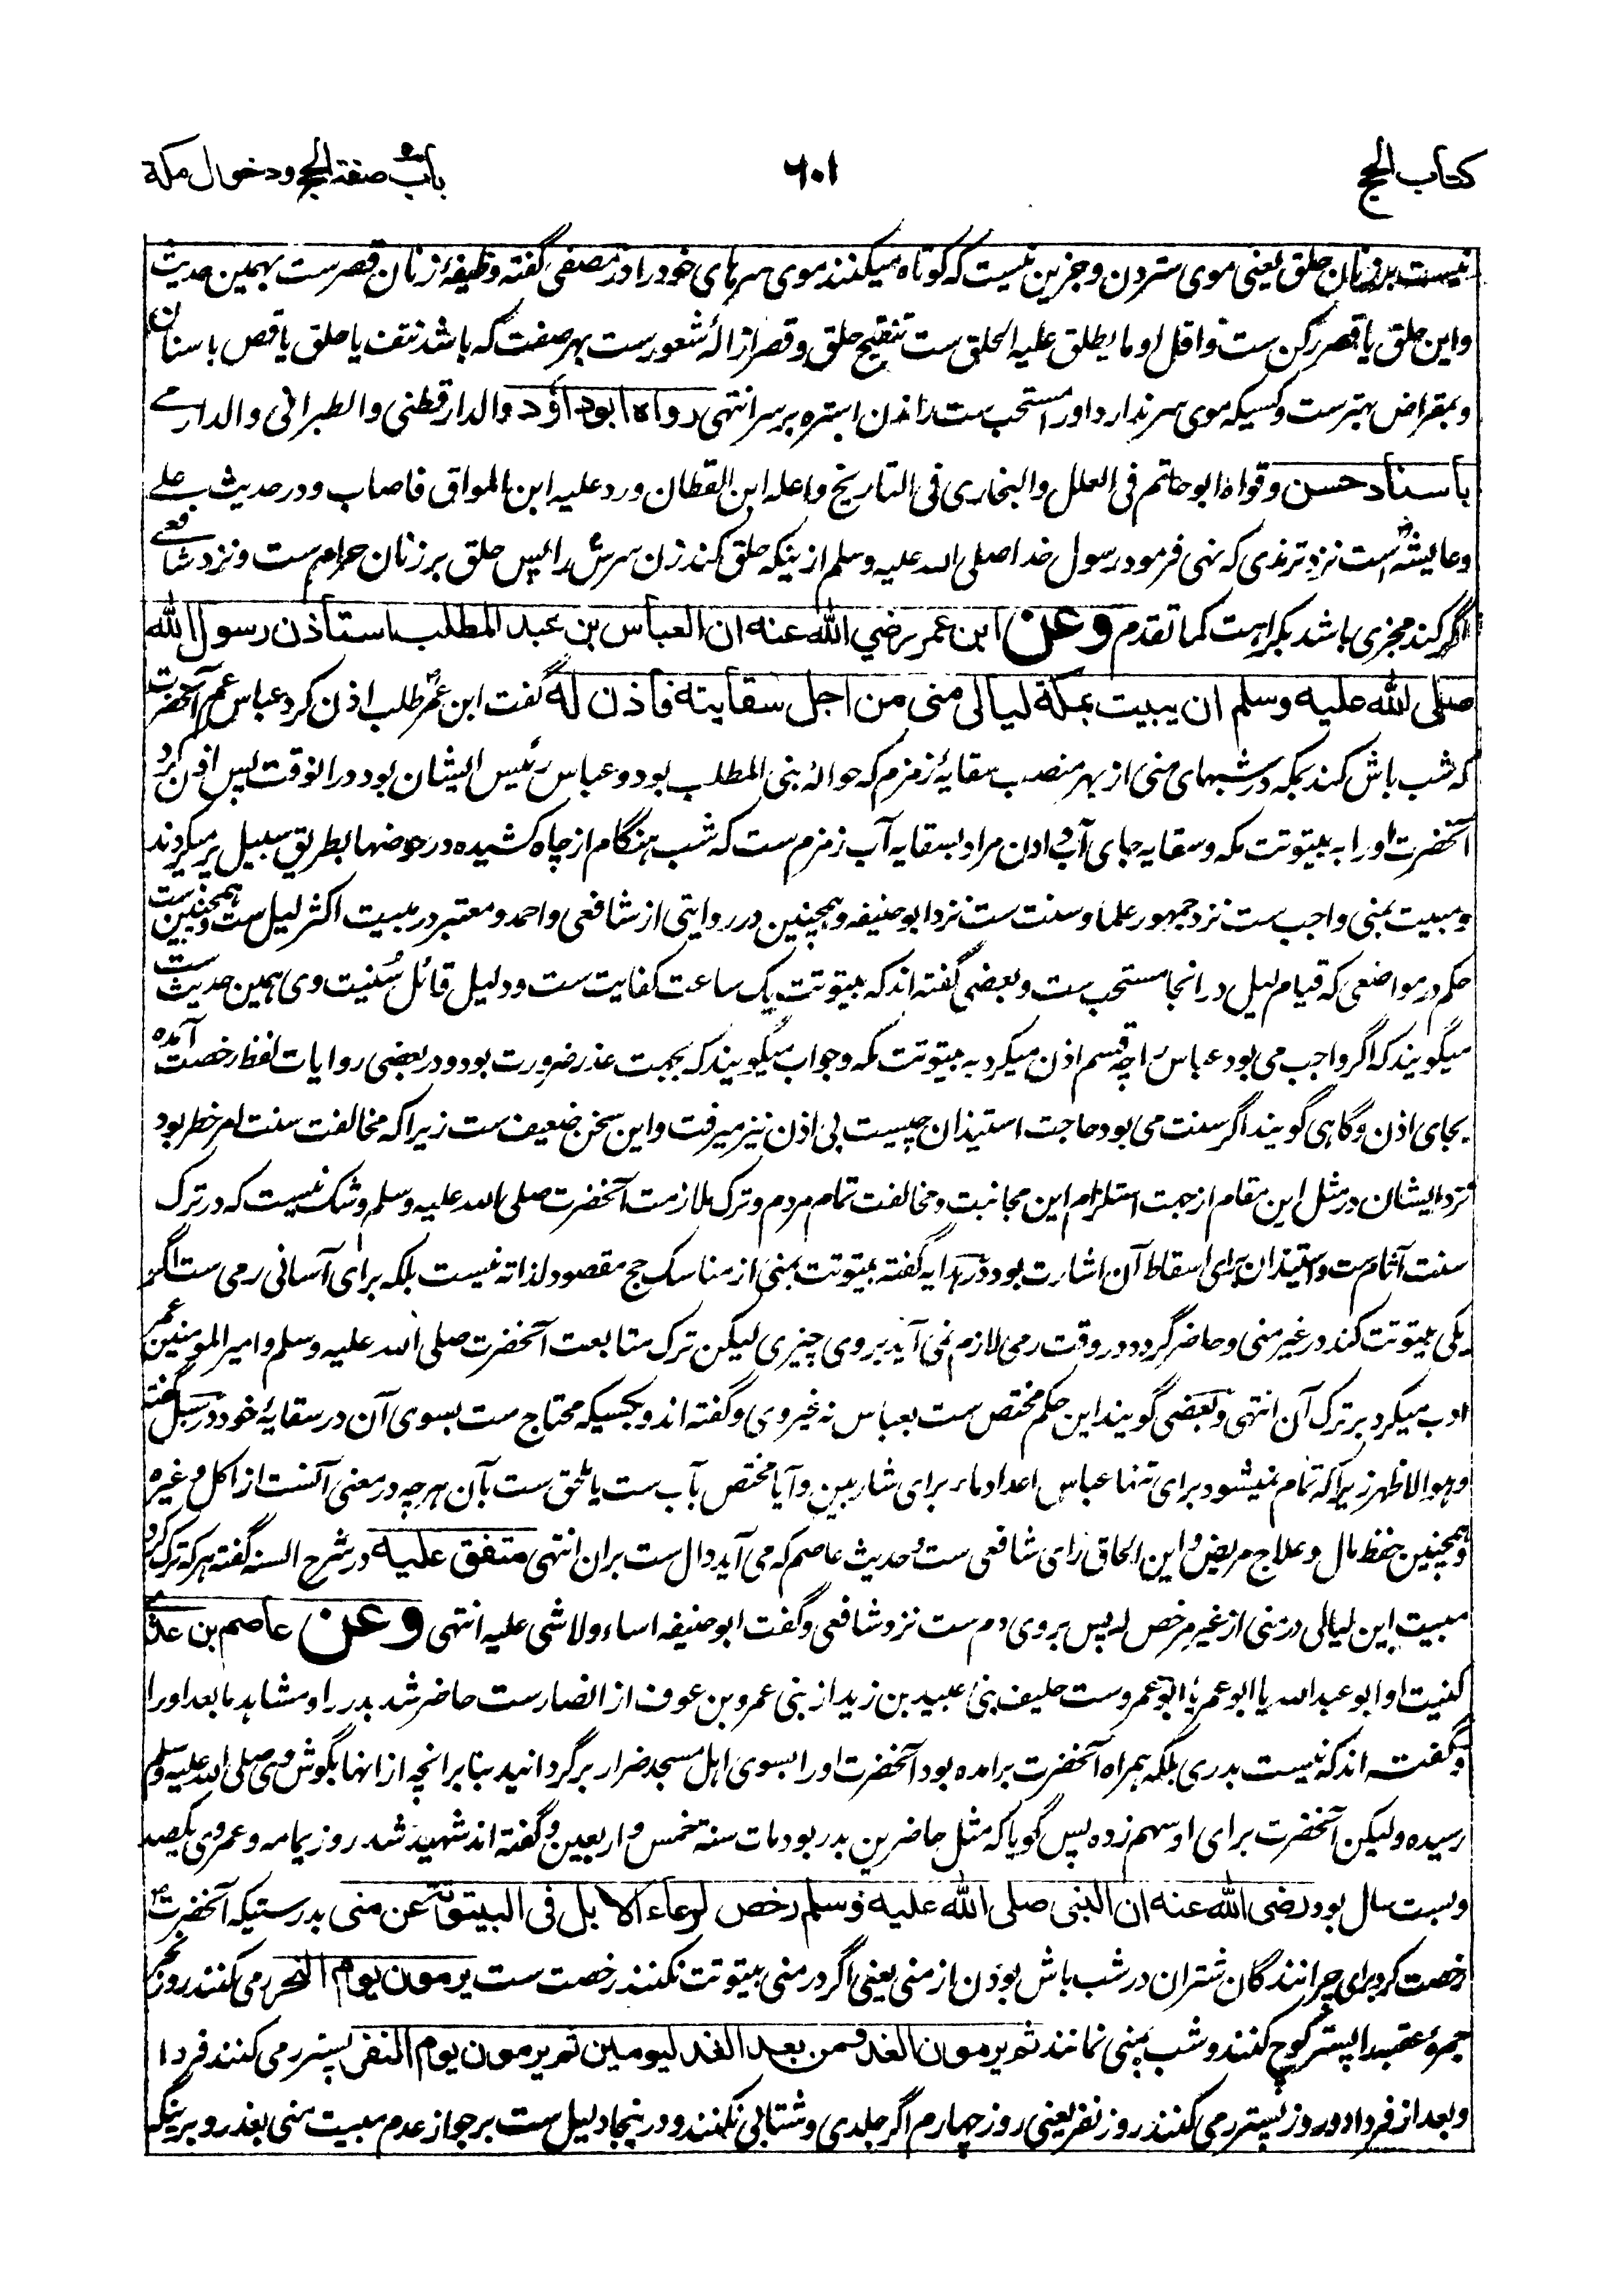 کتاب الحج
۶۰۱
باب صفة الحج ودخول مكة
نیست بر زنان حلق یعنی موی ستردن و جزین نیست که کوتاه میکنند موی سرهای خود را در مصفی گفته وظیفهٔ زنان قصرست بهمین حدیث
و این حلق یا قصر رکن ست و اقل او ما یطلق علیه الحلق ست تنقیح حلق و قصر ازالهٔ شعورست بهر صفت که باشد نتف یا حلق یا قص باسنان
و بمقراض بهترست و کسیکه موی سر ندارد او را مستحب ست راندن استره بر سر انتهی رواه ابوداؤد والدارقطنی والطبرانی والدارمی
باسناد حسن وقواه ابوحاتم فی العلل والبخاری فی التاریخ واعله ابن القطان ورد علیه ابن المواق فاصاب و در حدیث علی
و عایشه است نزد ترمذی که نهی فرمود رسول خدا صلی الله علیه وسلم ازینکه حلق کند زن سرش را پس حلق بر زنان حرام ست و نزد شافعی
اگر کند مجزی باشد بکراهت کما تقدم وعن ابن عمر رضي الله عنه ان العباس بن عبد المطلب استأذن رسول الله
صلى الله عليه وسلم ان يبيت بمكة ليالى منى من اجل سقايته فأذن له گفت ابن عمر طلب اذن کرد عباس عم آنحضرت
که شب باش کند بمکه در شبهای منی از بهر منصب سقایهٔ زمزم که حوالهٔ بنی المطلب بود و عباس رئیس ایشان بود در انوقت پس اذن کرد
آنحضرت او را به بیتوتت مکه و سقایه جای آب دادن مراد بسقایه آب زمزم ست که شب هنگام از چاه کشیده در حوضها بطریق سبیل پر میکردند
و مبیت بمنی واجب ست نزد جمهور علما و سنت ست نزد ابوحنیفه و همچنین در روایتی از شافعی و احمد و معتبر در مبیت اکثر لیل ست و همچنین ست
حکم در مواضعی که قیام لیل در انجا مستحب ست و بعضی گفته اند که بیتوتت یک ساعت کفایت ست و دلیل قائل سُنیت وی همین حدیث ست
میگویند که اگر واجب می بود عباس را چه قسم اذن میکرد به بیتوتت مکه و جواب میگویند که بجهت عذر ضرورت بود و در بعضی روایات لفظ رخصت آمده
بجای اذن و گاهی گویند اگر سنت می بود حاجت استیذان چیست بی اذن نیز میرفت و این سخن ضعیف ست زیرا که مخالفت سنت امر خطر بود
نزد ایشان در مثل این مقام از جهت استلزام این مجانبت و مخالفت تمام مردم و ترک ملازمت آنحضرت صلی الله علیه وسلم و شک نیست که در ترک
سنت آثام ست و استیذان برای اسقاط آن اشارت بود و در هدایه گفته بیتوتت بمنی از مناسک حج مقصود لذاته نیست بلکه برای آسانی رمی ست اگر
یکی بیتوتت کند در غیر منی و حاضر گردد در وقت رمی لازم نمی آید بروی چیزی لیکن ترک متابعت آنحضرت صلی الله علیه وسلم و امیر المومنین عمر
ادب میکرد بر ترک آن انتهی و بعضی گویند این حکم مختص ست بعباس نه غیر وی و گفته اند و بکسیکه محتاج ست بسوی آن در سقایهٔ خود در سبل گفته
وهو الاظهر زیرا که تمام نمیشود برای تنها عباس اعداد ماء برای شاربین و آیا مختص بآب ست یا ملحق ست بآن هرچه در معنی آنست از اکل و غیره
و همچنین حفظ مال و علاج مریض و این الحاق رای شافعی ست و حدیث عاصم که می آید دال ست بران انتهی متفق علیه در شرح السنه گفته هر که ترک کرد
مبیت این لیالی در منی از غیر مرخص له پس بروی دم ست نزد شافعی و گفت ابوحنیفه اساء ولا شی علیه انتهی وعن عاصم بن عدی
کنیت او ابوعبدالله یا ابوعمر یا ابوعمرو ست حلیف بنی عبید بن زید از بنی عمرو بن عوف از انصارست حاضر شد بدر را و مشاهد ما بعد او را
و گفته اند که نیست بدری بلکه همراه آنحضرت برامده بود آنحضرت او را بسوی اهل مسجد ضرار برگردانید بنا برانچه از انها بگوش وی صلی الله علیه وسلم
رسیده ولیکن آنحضرت برای او سهم زده پس گویا که مثل حاضرین بدر بود مات سنة خمس و اربعین و گفته اند شهید شد روز یمامه و عمر وی یکصد
و بست سال بود رضی الله عنه ان النبی صلى الله عليه وسلم رخص لرعاء الابل فی البیتوتة عن منی بدرستیکه آنحضرت
رخصت کرد برای چرانندگان شتران در شب باش بودن از منی یعنی اگر در منی بیتوتت نکنند رخصت ست یرمون یوم النحر رمی کنند روز نحر
جمرهٔ عقبه را پستر کوچ کنند و شب بمنی نمانند ثم یرمون الغد ومن بعد الغد لیومین ثم یرمون یوم النفر پستر رمی کنند فردا
و بعد از فردا دو روز پستر رمی کنند روز نفر یعنی روز چهارم اگر جلدی و شتابی نکنند و درینجا دلیل ست بر جواز عدم مبیت منی بعذر و برینکه